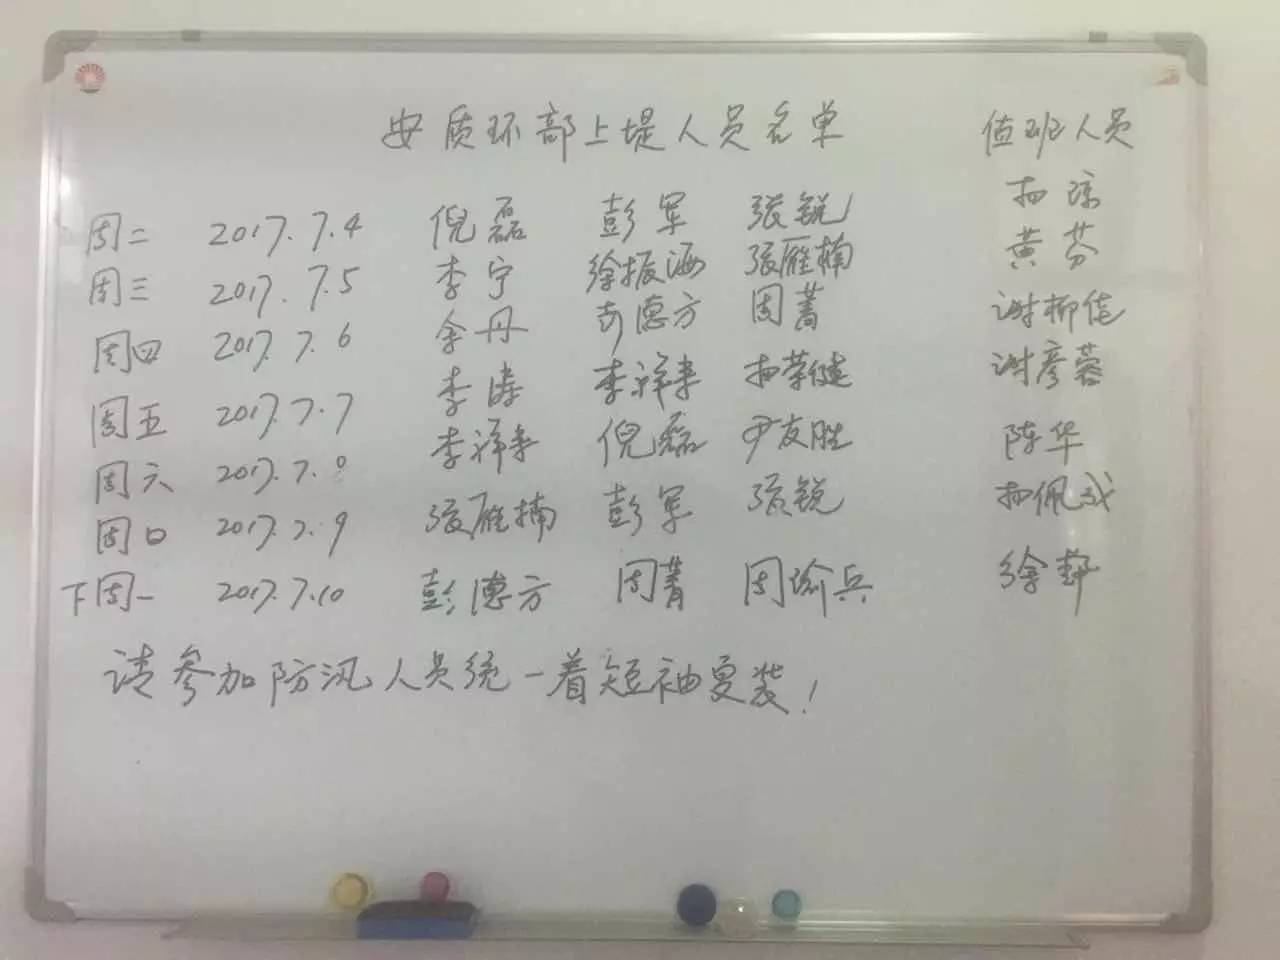 安质环部上堤人员名单 值班人员
周二 2017.7.4 倪磊 彭军 张锐 杨琼
周三 2017.7.5 李宁 徐振海 张雁楠 黄芬
周四 2017.7.6 余丹 彭德方 周菁 谢柳佳
周五 2017.7.7 李涛 李祥来 杨荣健 谢彦蓉
周六 2017.7.8 李祥来 倪磊 尹友胜 陈华
周日 2017.7.9 张雁楠 彭军 张锐 杨佩
下周一 2017.7.10 彭德方 周菁 周瑜兵 徐
请参加防汛人员统一着短袖夏装!